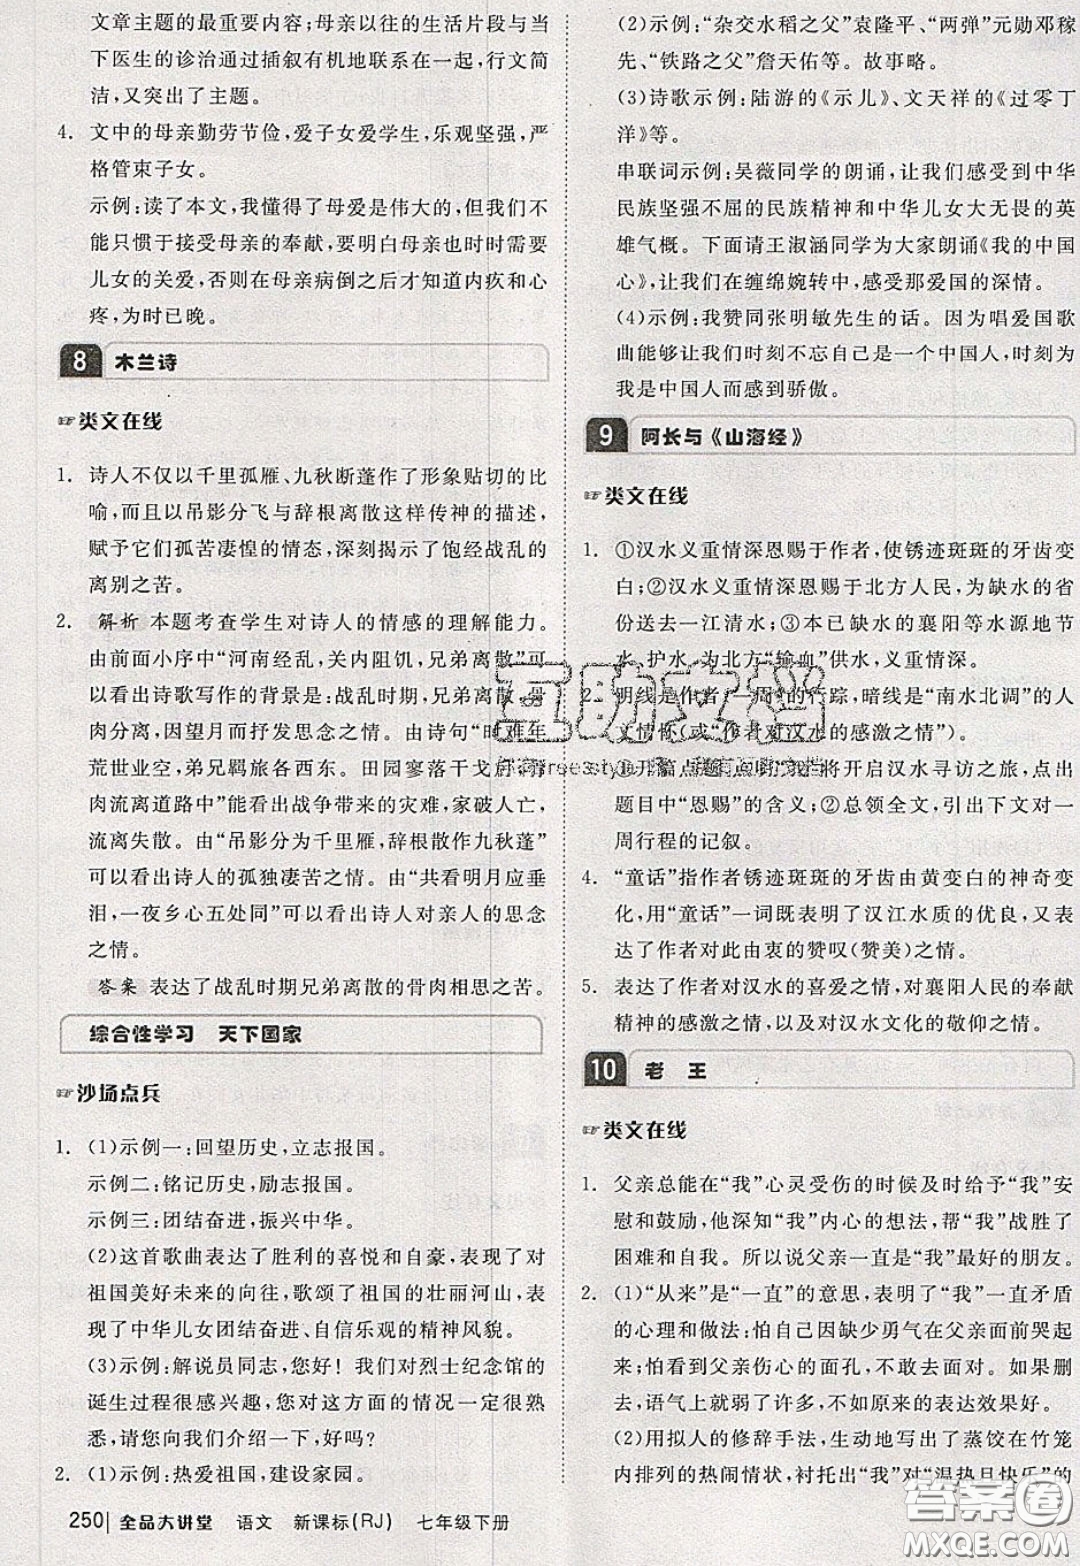 文章主题的重要内容；母亲以往的生活片段与当
下医生的诊治通过插叙有机地联系在一起，行文简
洁，又突出了主题。
4. 文中的母亲勤劳节俭，爱子女爱学生，乐观坚强，严
格管束子女。
示例：读了本文，我懂得了母爱是伟大的，但我们不
能只惯于接受母亲的奉献，要明白母亲也时时需要
儿女的关爱，否则在母亲病倒之时才知道内疚和心
疼，为时已晚。
8 木兰诗
类文在线
1. 诗人不仅以千里孤雁、九秋断蓬作了形象贴切的比
喻，而且以吊影分飞与辞根离散这样传神的描述，
赋予它们孤苦凄惶的情态，深刻揭示了饱经战乱的
离别之苦。
2. 解析 本题考查学生对诗人的情感的理解能力。
由前面小序中“河南经乱，关内阻饥，兄弟离散”可
以看出诗歌写作的背景是：战乱时期，兄弟离散，骨
肉分离，因望月而抒发思念之情。由诗句“时难年
荒世业空，弟兄羁旅各西东。田园寥落干戈后，骨
肉流离道路中”能看出战争带来的灾难，家破人亡，
流离失散。由“吊影分为千里雁，辞根散作九秋蓬”
可以看出诗人的孤独凄苦之情。由“共看明月应垂
泪，一夜乡心五处同”可以看出诗人对亲人的思念
之情。
答案 表达了战乱时期兄弟离散的骨肉相思之苦。
综合性学习 天下国家
沙场点兵
1. (1)示例一：回望历史，立志报国。
示例二：铭记历史，励志报国。
示例三：团结奋进，振兴中华。
(2)这首歌曲表达了胜利的喜悦和自豪，表现了对
祖国美好未来的向往，歌颂了祖国的壮丽河山，表
现了中华儿女团结奋进、自信乐观的精神风貌。
(3)示例：解说员同志，您好！我们对烈士纪念馆的
诞生过程很感兴趣，您对这方面的情况一定很熟
悉，请您向我们介绍一下，好吗？
2. (1)示例：热爱祖国，建设家园。
250 全品大讲堂 语文 新课标(RJ) 七年级下册
(2)示例：“杂交水稻之父”袁隆平、“两弹”元勋邓稼
先、“铁路之父”詹天佑等。故事略。
(3)诗歌示例：陆游的《示儿》、文天祥的《过零丁
洋》等。
串联词示例：吴薇同学的朗诵，让我们感受到中华
民族坚强不屈的民族精神和中华儿女大无畏的英
雄气概。下面请王淑涵同学为大家朗诵《我的中国
心》，让我们在缠绵婉转中，感受那爱国的深情。
(4)示例：我赞同张明敏先生的话。因为唱爱国歌
曲能够时刻提醒自己是一个中国人，时刻为
我是中国人而感到骄傲。
9 阿长与《山海经》
类文在线
1. ①汉水义重情深恩赐于作者，使锈迹斑斑的牙齿变
白；②汉水义重情深恩赐于北方人民，为缺水的省
份送去一江清水；③本已缺水的襄阳等水源地节
水、护水，为北方“输血”供水，义重情深。
2. 明线是作者一周的行踪，暗线是“南水北调”的人
文情怀(或“作者对汉水的感激之情”)。
①开篇点题，点明“我”将开启汉水寻访之旅，点出
题目中“恩赐”的含义；②总领全文，引出下文对一
周行程的记叙。
4. “童话”指作者锈迹斑斑的牙齿由黄变白的神奇变
化，用“童话”一词既表明了汉江水质的优良，又表
达了作者对此由衷的赞叹(赞美)之情。
5. 表达了作者对汉水的喜爱之情，对襄阳人民的奉献
精神的感激之情，以及对汉水文化的敬仰之情。
10 老 王
类文在线
1. 父亲总能在“我”心灵受伤的时候及时给予“我”安
慰和鼓励，他深知“我”内心的想法，帮“我”战胜了
困难和自我。所以说父亲一直是“我”最好的朋友。
2. (1)“从来”是“一直”的意思，表现了“我”一直矛盾
的心理和做法：怕自己因缺少勇气在父亲面前哭起
来；怕看父亲伤心的面孔，不敢对面一次。如果删
去，语气上就弱了许多，没有原来的表达效果好。
(2)用拟人的修辞手法，生动地写出了蒸饺在竹笼
里拥挤的热闹情状，衬托出“我”对“温热且快乐”的
互助文档
答案圈